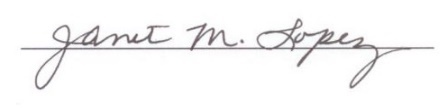 Janet M. Lopez